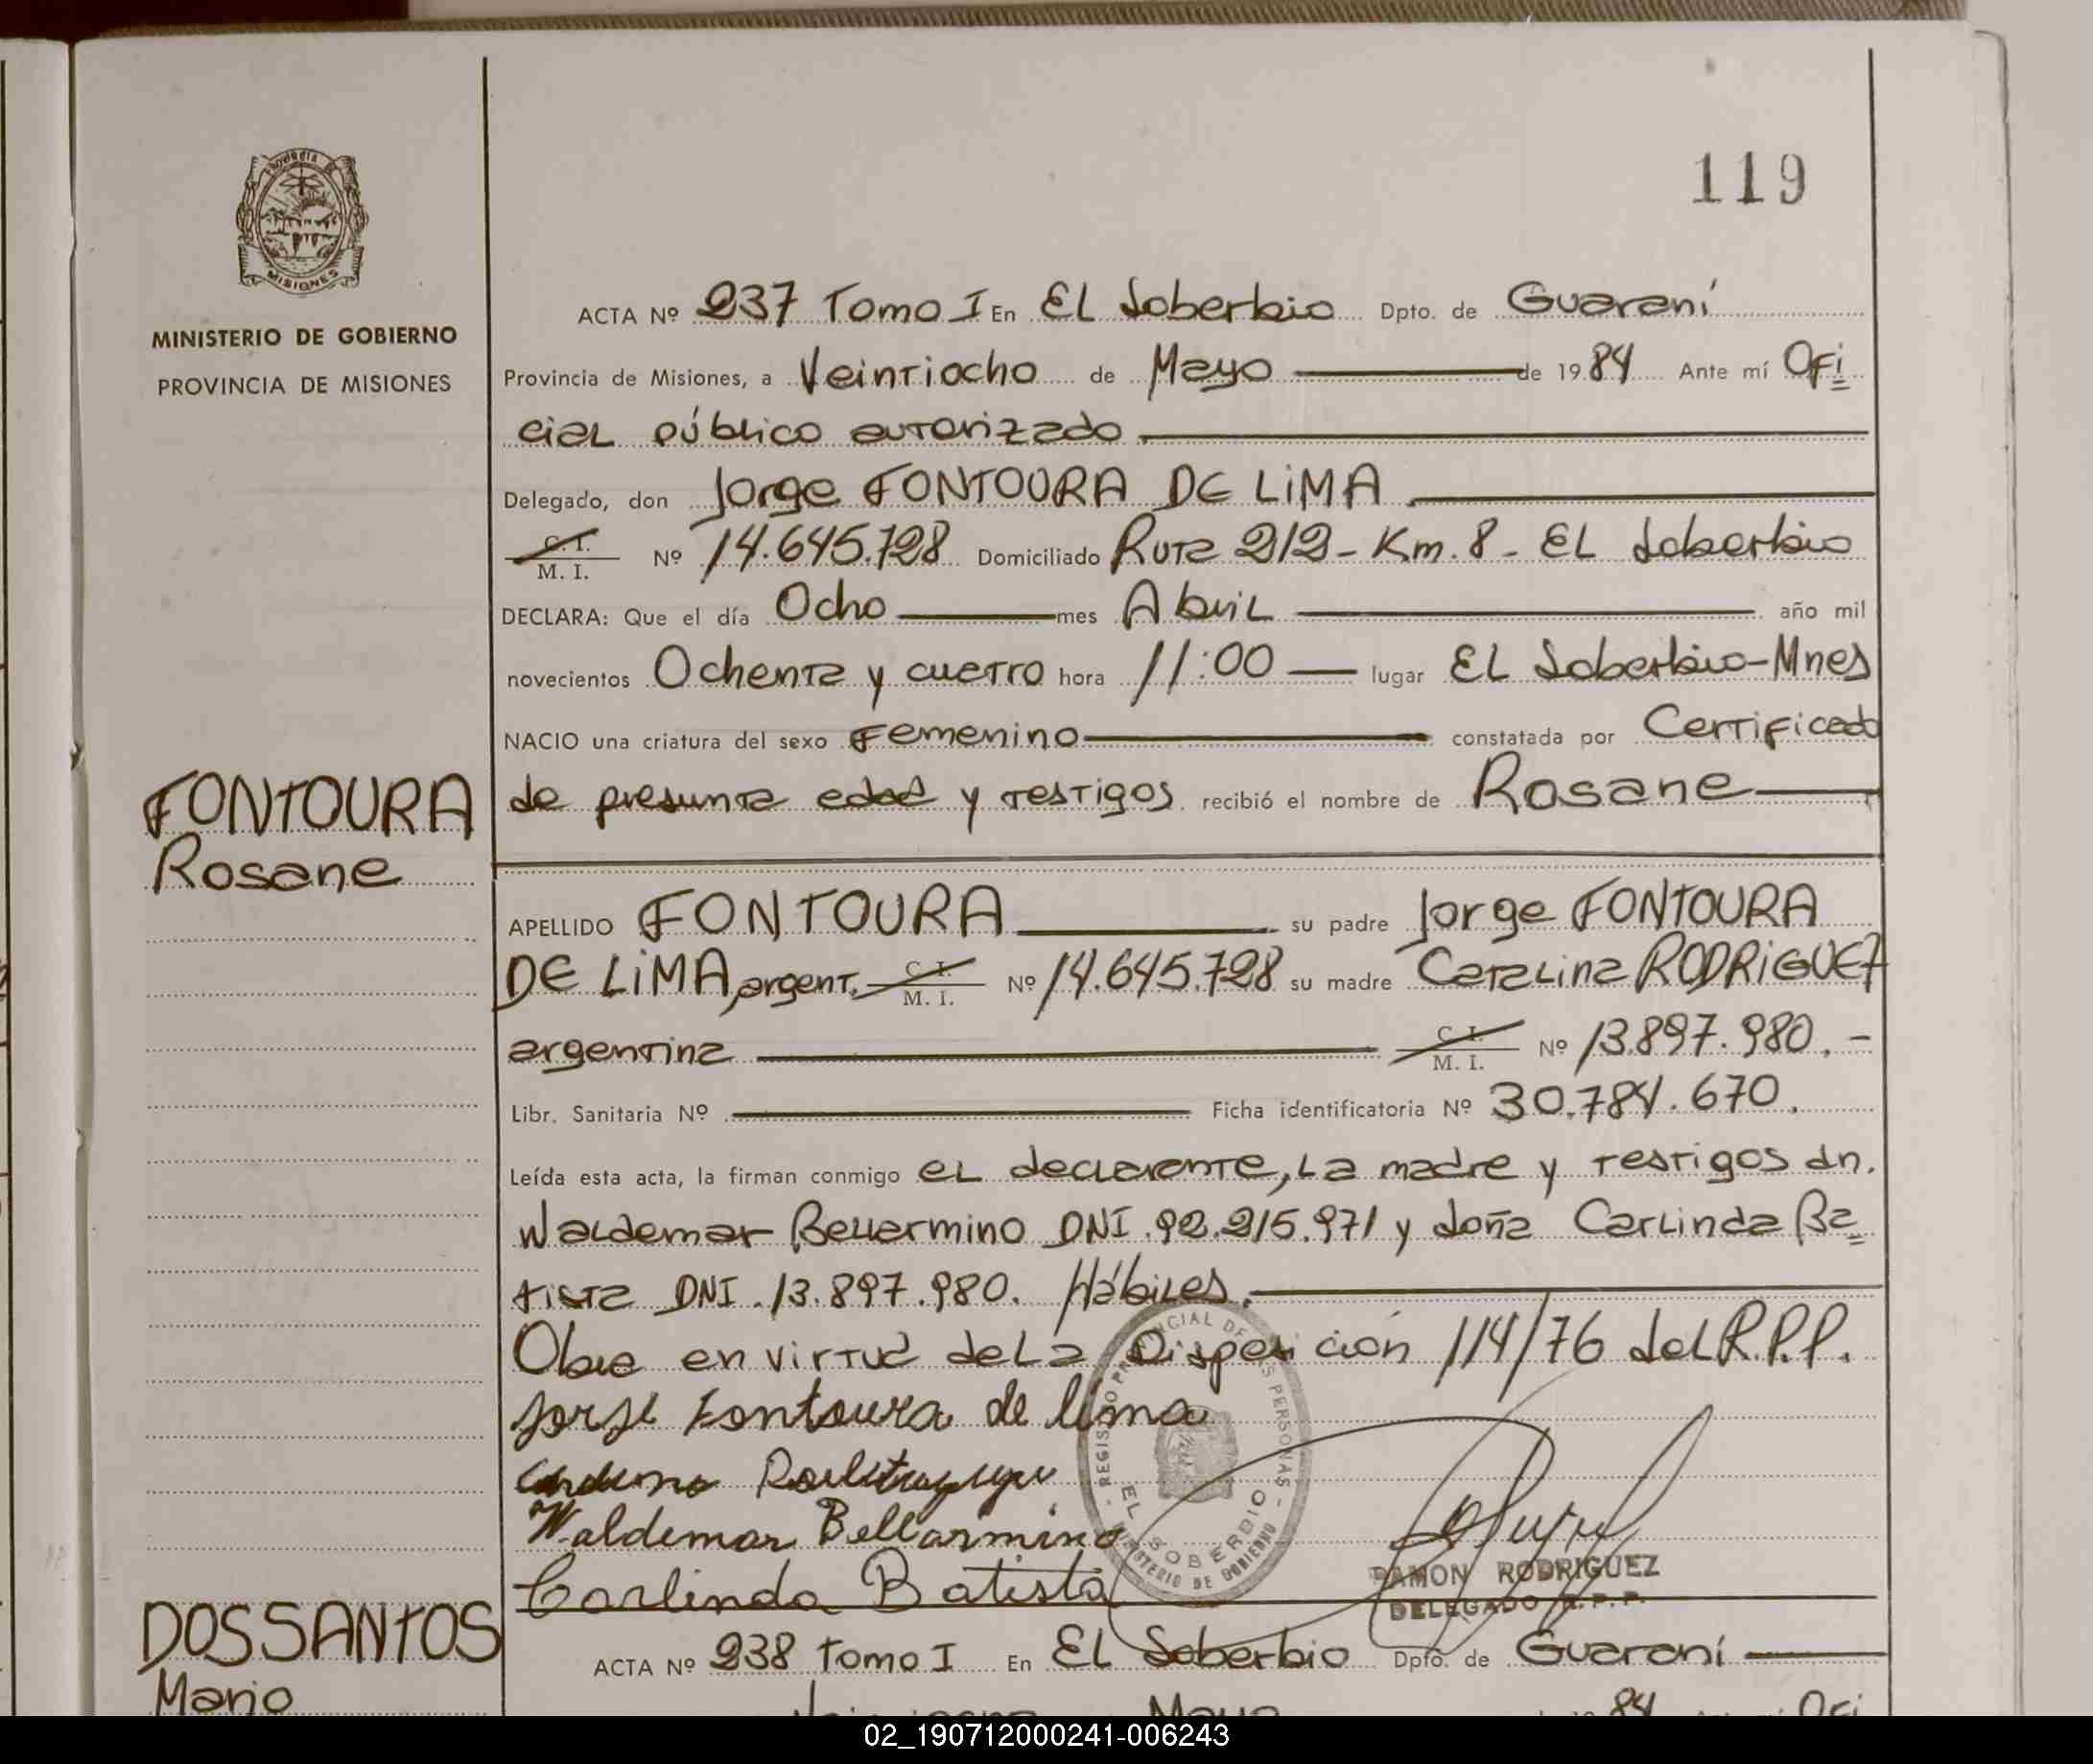 119
PROVINCIA DE
MISIONES
MINISTERIO DE GOBIERNO
PROVINCIA DE MISIONES
ACTA Nº 237 Tomo I En EL Soberbio Dpto. de Guaraní
Provincia de Misiones, a Veintiocho de Mayo de 1984 Ante mí Ofi
cial público autorizado
Delegado, don Jorge FONTOURA DE LIMA
C. I.
M. I. Nº 14.645.728 Domiciliado Ruta 212 - Km. 8 - EL Soberbio
DECLARA: Que el día Ocho mes Abril año mil
novecientos Ochenta y cuatro hora 11:00 lugar EL Soberbio-Mnes
NACIO una criatura del sexo Femenino constatada por Certificado
de presunta edad y testigos recibió el nombre de Rosane
FONTOURA
Rosane
APELLIDO FONTOURA su padre Jorge FONTOURA
DE LIMA, argent. C. I.
M. I. Nº 14.645.728 su madre Catalina RODRIGUEZ
argentina C. I.
M. I. Nº 13.897.980.-
Libr. Sanitaria Nº Ficha identificatoria Nº 30.784.670.
Leída esta acta, la firman conmigo eL declarante, La madre y testigos dn.
Waldemar Bellarmino DNI. 92.215.971 y doña Carlinda Ba
tista DNI. 13.897.980. Hábiles.
Obre en virtud de La Disposición 114/76 del R.P.P.
Jorge Fontoura de lima
Waldemar Bellarmino
Carlinda Batista
REGISTRO PROVINCIAL DE LAS PERSONAS
EL SOBERBIO
MINISTERIO DE GOBIERNO
RAMON RODRIGUEZ
DELEGADO R.P.P.
DOSSANTOS
Mario
ACTA Nº 238 Tomo I En EL Soberbio Dpto. de Guaraní
Mayo 84 Ofi
02_190712000241-006243